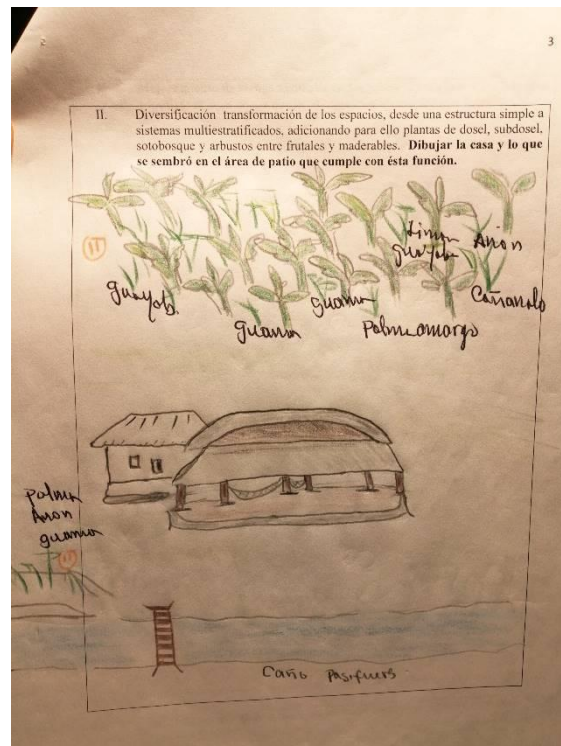 3
II. Diversificación transformación de los espacios, desde una estructura simple a
sistemas multiestratificados, adicionando para ello plantas de dosel, subdosel,
sotobosque y arbustos entre frutales y maderables. Dibujar la casa y lo que
se sembró en el área de patio que cumple con ésta función.
11
Limon
guayaba
Anon
guayab.
guama
guama
Palma amarga
palma
Anon
guama
11
Caño